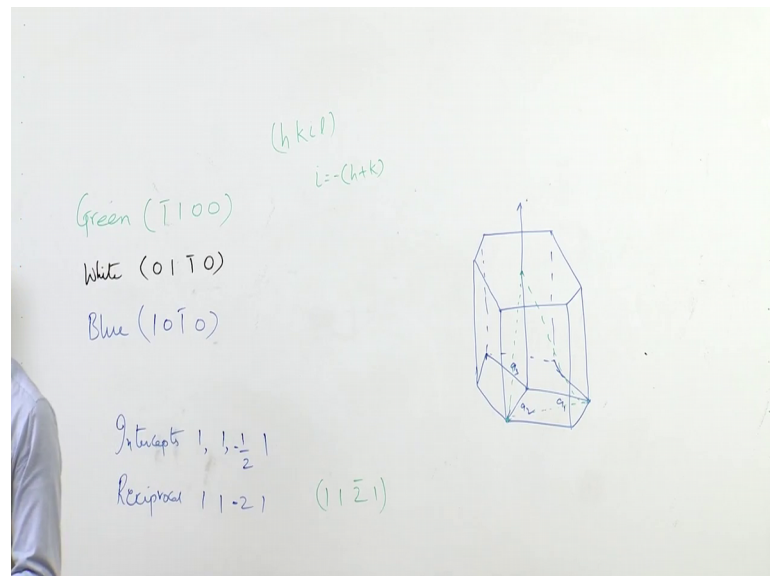 (hkil)
i=-(h+k)
Green (1̄100)
White (011̄0)
Blue (101̄0)
Intercepts 1, 1, -1/2 1
Reciprocal 1 1 -2 1 (112̄1)
a3
a2 a1